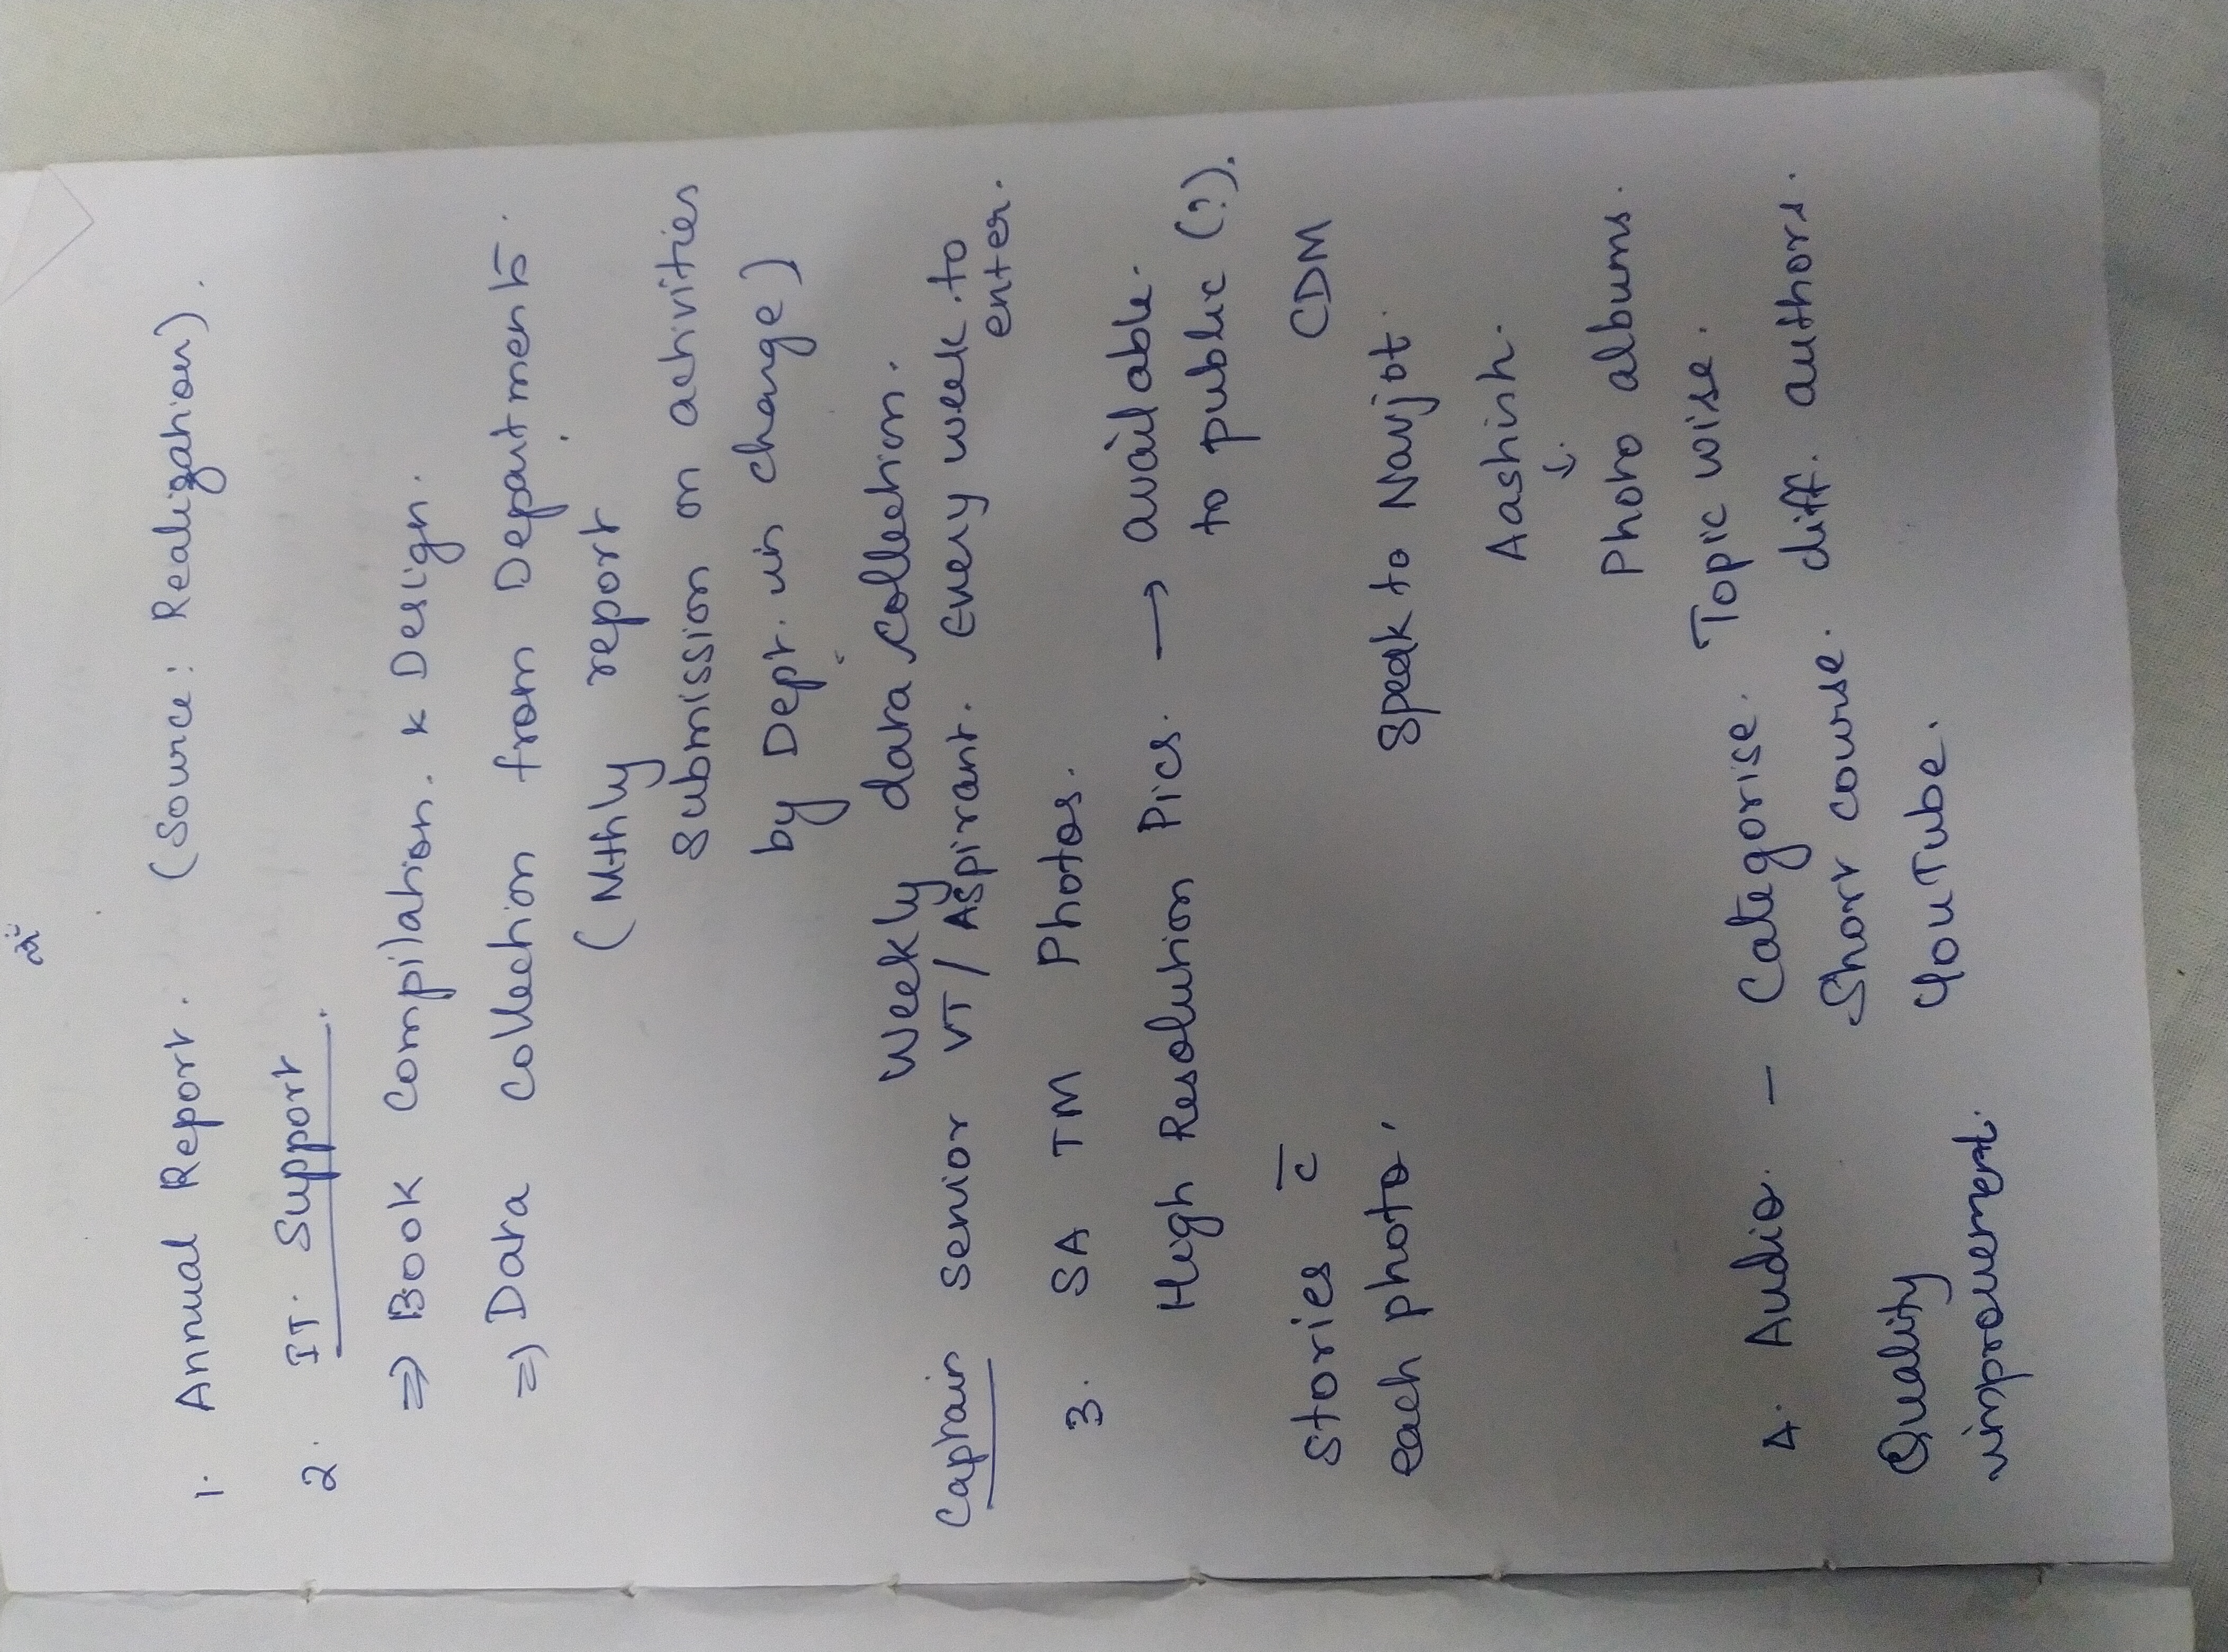 1. Annual Report. (Source: Realization).
2. IT Support.
⇒ Book Compilation. & Design.
⇒ Data Collection from Departments.
(Mthly report
Submission on activities
by Dept. in charge)
Weekly data collection.
Captain Senior VT/Aspirant. Every week to
enter.
3. SA TM Photos.
High Resolution Pics. → available.
to public (?).
Stories c̅ CDM
each photo. Speak to Navjot.
Aashish.
↓
Photo albums.
4. Audio. — Categorise. Topic wise.
Short course. diff. authors.
Quality YouTube.
improvement.